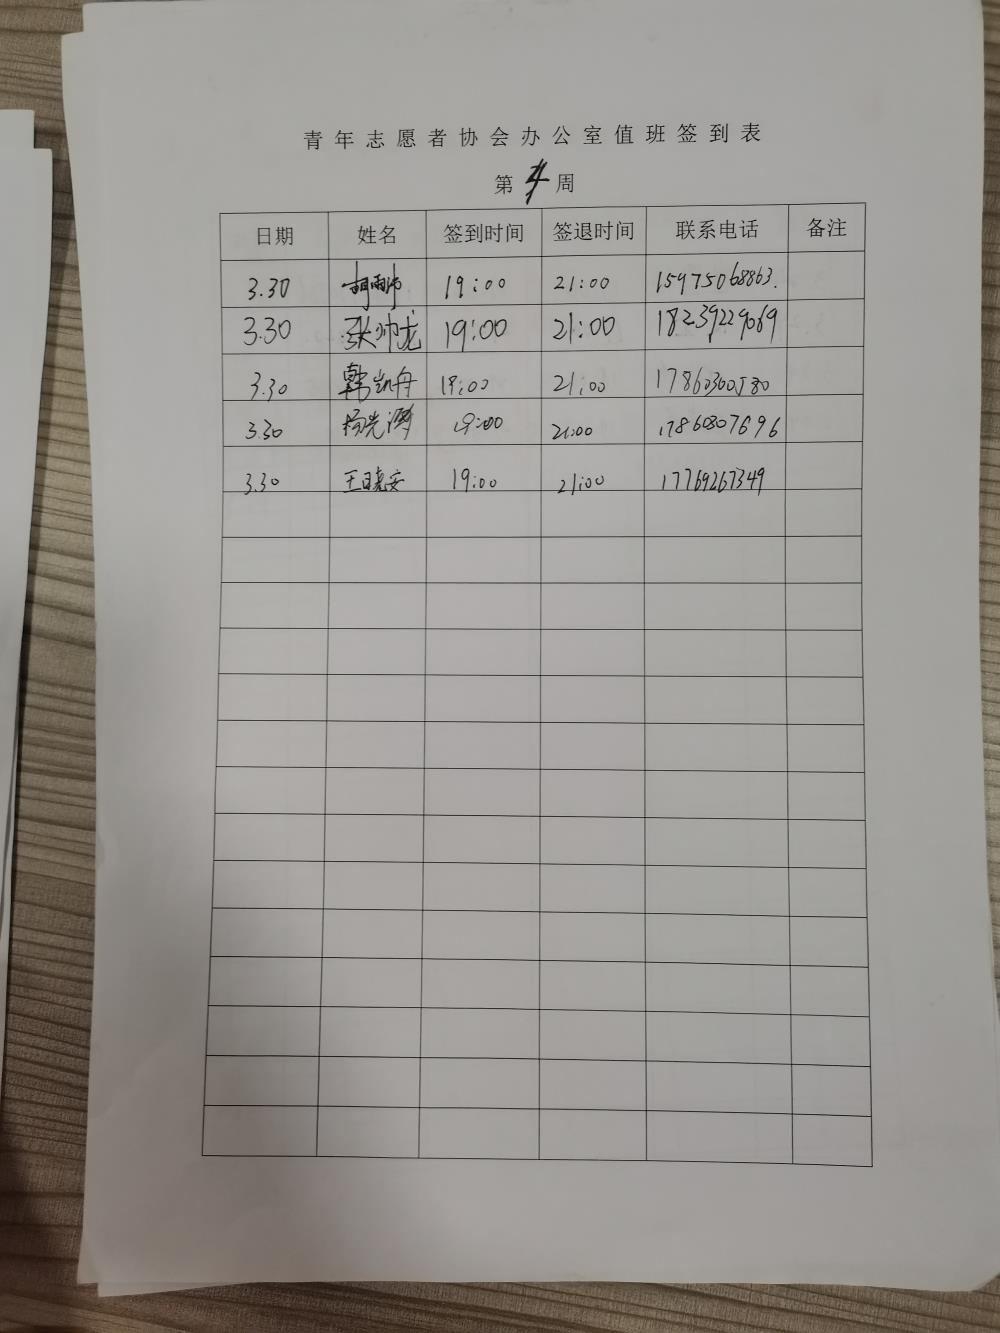 青年志愿者协会办公室值班签到表
第4周
日期 姓名 签到时间 签退时间 联系电话 备注
3.30 19:00 21:00 15975068863.
3.30 张帅龙 19:00 21:00 18239229069
3.30 韩凯舟 19:00 21:00 17860300580
3.30 19:00 21:00 17860807696
3.30 王晓安 19:00 21:00 17769267349